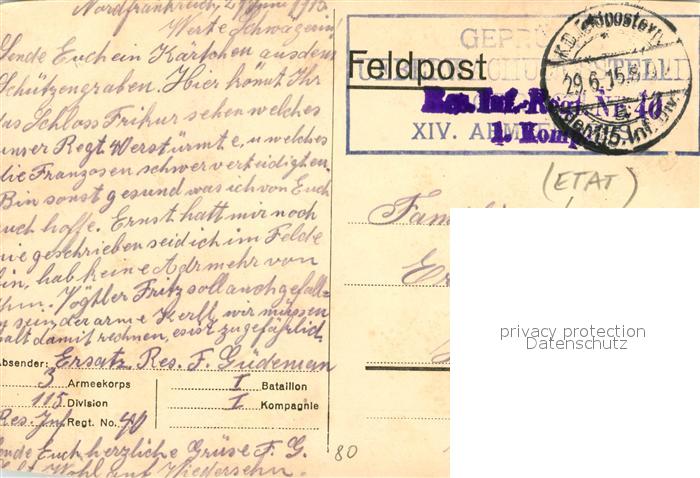 Nordfrankreich, 29 Juni 1915
Werte Schwägerin!
Sende Euch ein Kärtchen aus dem
Schützengraben. Hier könnt Ihr
das Schloss Frikur sehen welches
unser Regt. Verstürmte, u welches
die Franzosen schwer verteidigten.
Bin sonst gesund was ich von Euch
auch hoffe. Ernst hatt mir noch
nie geschrieben seid ich im Felde
bin, hab keine Adr mehr von
ihm. Vögtler Fritz soll auch gefall-
en sein der arme Kerll, wir müssen
halt damit rechnen, es ist zu gefährlich.
Absender: Ersatz. Res. F. Güdeman
3 Armeekorps I Bataillon
115 Division I Kompagnie
Res. Inf. Regt. No. 40
Sende Euch herzliche Grüse F. G.
Lebt Wohl auf Wiedersehn.
Feldpost
GEPRÜ
XIV. ARM
Res. Inf.-Regt. Nr. 40
1. Komp.
K.D. Feldpostexp.
29.6.15.
115. Inf. Div.
(ETAT)
Fam
Er
80
privacy protection
Datenschutz